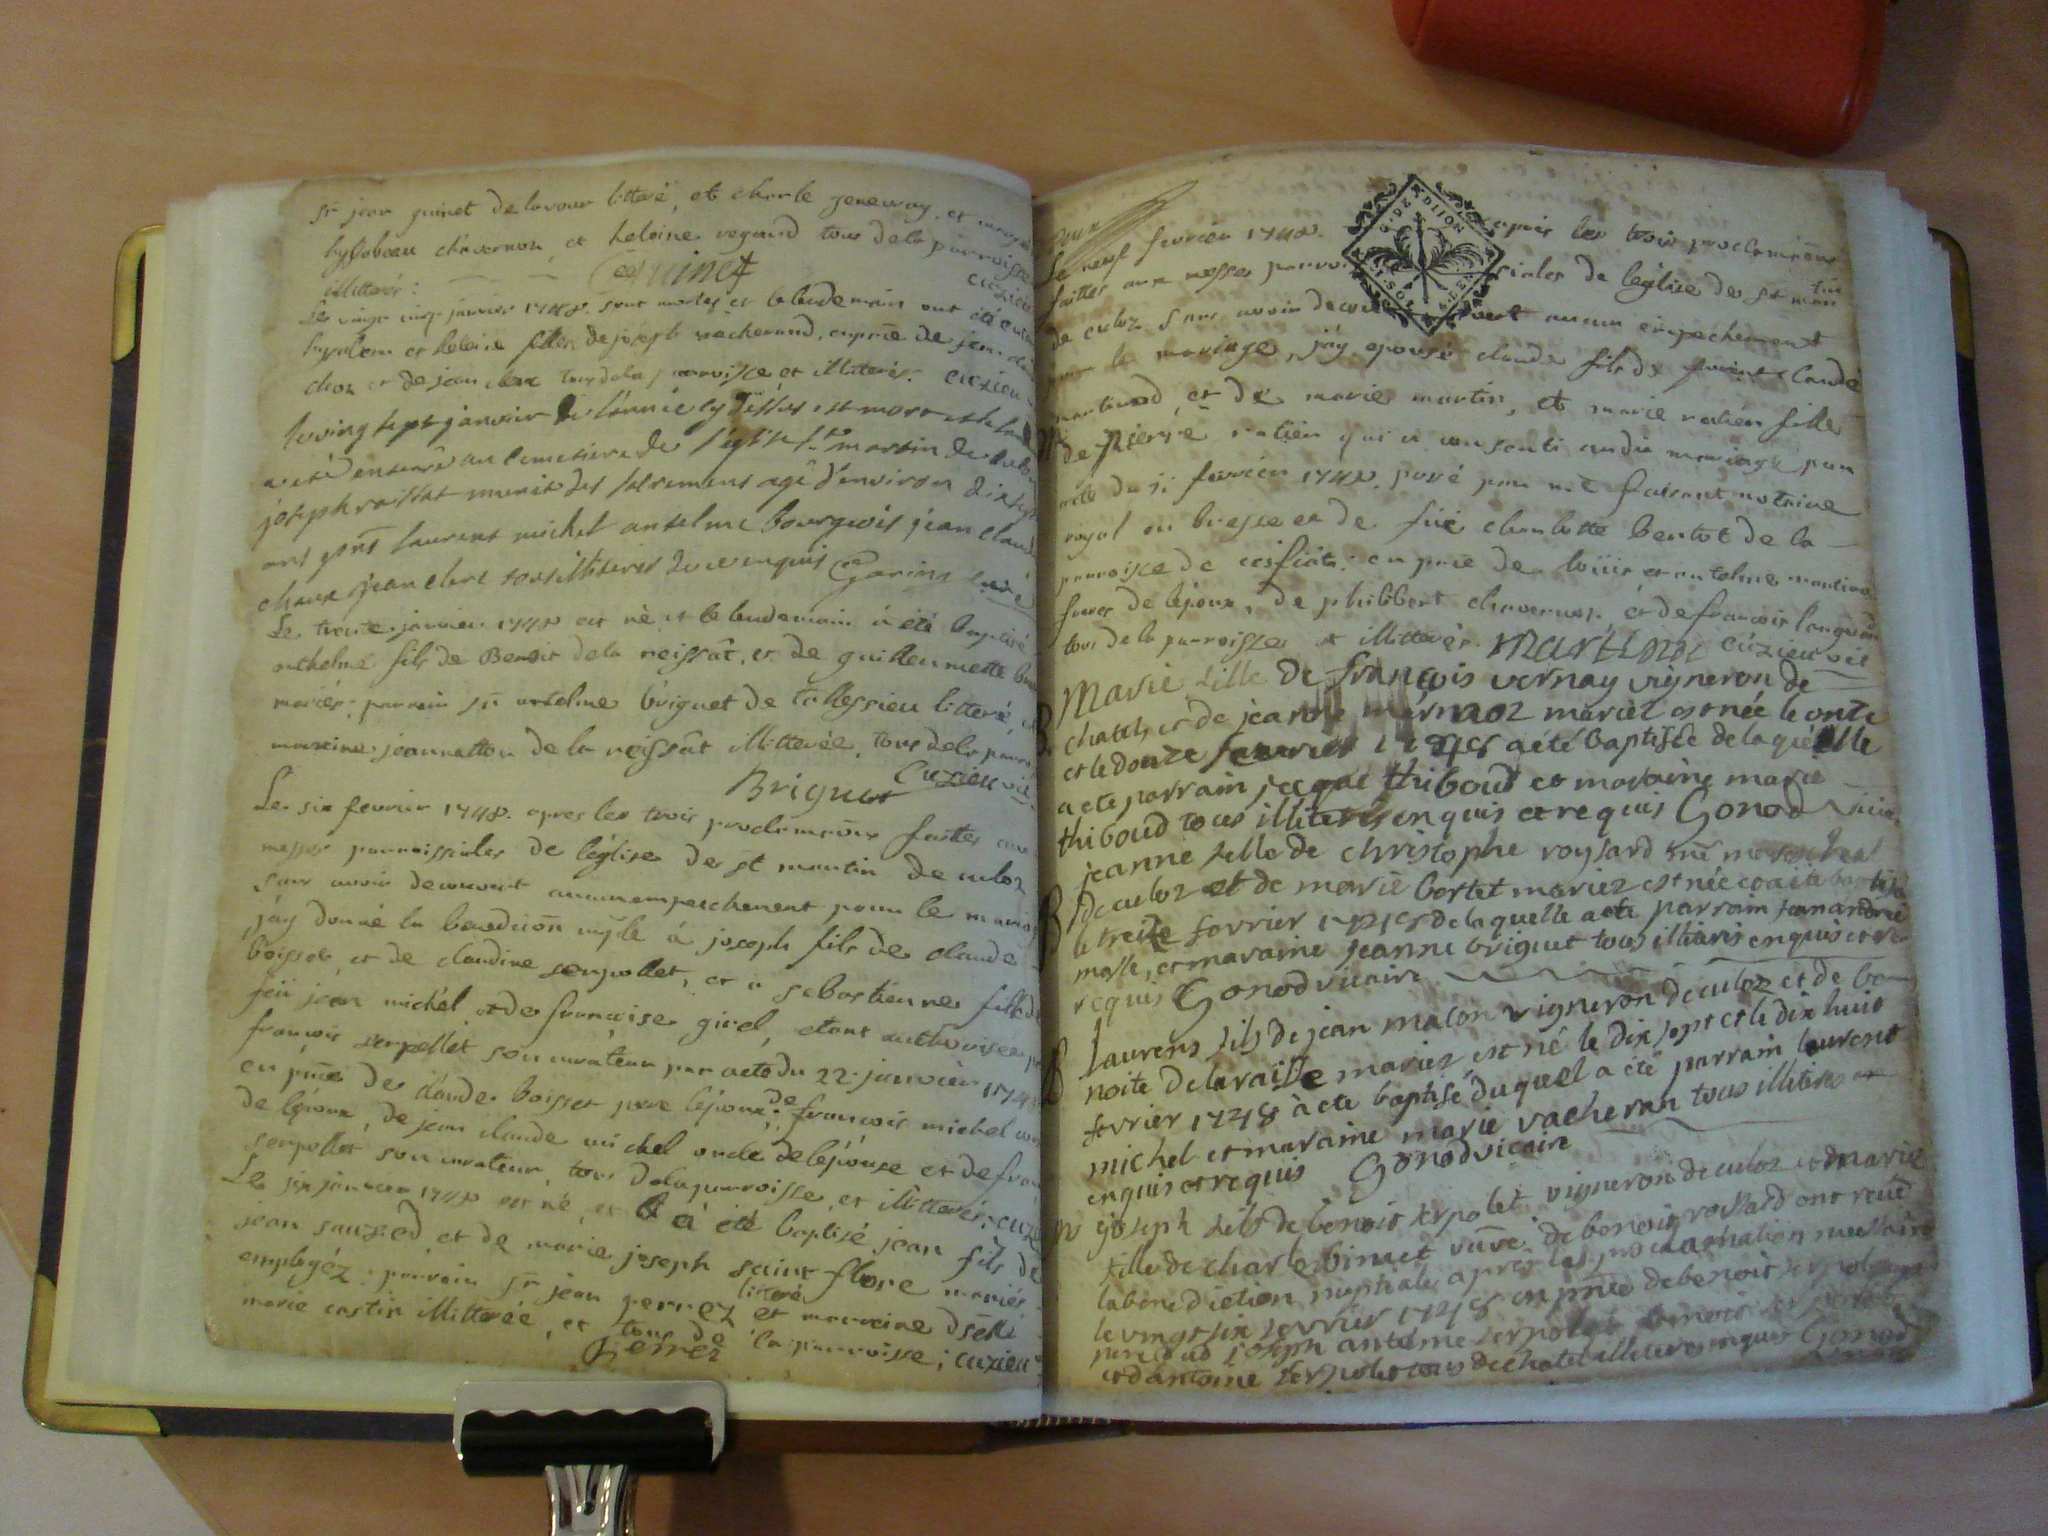 sr jean guinet de lavour litteré, et charle geneway, et
hysabeau chavernou, et heleine regard tous de la parroisse
illitterés: Guinet cuzieu
Le vingt cinq janvier 1748. sont mortes et le lendemain ont été
et heleine filles de joseph vacherand, en pnce de jean
chox et de jean clerc tous de la parroisse et illiterés. cuzieu
le vingt sept janvier de l'année cy dessus est mort et le
a été enterré au cemetiere de l'eglise st martin de culoz
joseph rossat munit des sacremens agé d'environ dix sept
ans pnts laurent michel antelme bourgeois jean claude
chaux jean clerc tous illiteres de ce enquis Gonod
Le trente janvier 1748 est né et le lendemain à été baptisé
anthelme fils de Benoit de la reissât, et de guillemette
mariés: parrain sr antelme briguet de tallessieu litteré,
marreine jeannetton de la reissât illitterée, tous de la parr
Briguet cuzieu vic
Le six fevrier 1748. apres les trois proclamaõns faittes aux
messes parroissiales de l'église de st martin de culoz
sans avoir decouvert aucun empeschement pour le mariage
j'ay donné la benediction nuple à joseph fils de claude
boisset, et de claudine serpollet, et à sebastienne fille de
feü jean michel et de françoise girel, etant authorisée par
françois serpollet son curateur par acte du 22 janvier 174
en pnce de claude boisset pere l'epoux, de françois michel
de l'epoux, de jean claude michel oncle de l'épouse et de fran
serpollet son curateur, tous de la parroisse, et illitterés; cuzi
Le six janvier 1748 est né, et à été baptisé jean fils de
jean sauzed, et de marie joseph saint flore mariés
employéz: parrain sr jean perrez litteré et marreine dselle
marie castin illitterée, et tous de la parroisse; cuzieu
Perrez
G. DE DIJON
Le neuf fevrier 1748. apres les trois proclamaõns
faittes aux messes parroissiales de l'église de st martin
de culoz sans avoir decouvert aucun empechement
pour le mariage, j'ay epousé claude fils de claude
martinod, et de marie martin, et marie ratier fille
de pierre ratier qui a consenti audit mariage par
acte du 5 fevrier 1748. passé par notaire
royal en bresse et de füe charlotte Bertet de la
parroisse de en pnce de loüis et antelme martinod
freres de lepoux, de philibert chavernos, et de francois
tous de la parroisse et illitterés. Martinod cuzieu vic
Marie fille de françois vernay vigneron de
chatel et de jeanne mariez est née le onze
et le douze fevrier 1748 a été baptisée de laquelle
a ete parrain jacque thiboud et maraine marie
thiboud tous illiterés enquis et requis Gonod vicaire
jeanne fille de christophe roysard
de culoz et de marie bertet mariez est née et a été baptisée
le treize fevrier 1748 de laquelle a ete parrain jean andré
masse, et maraine jeanne briguet tous illiterés enquis et
requis Gonod vicaire
Laurens fils de jean maton vigneron de culoz et de be
noite de laraisse mariez, est né le dix sept et le dix huit
fevrier 1748 à ete baptisé duquel a été parrain laurent
michel et maraine marie vacheran tous illiteres
enquis et requis Gonod vicaire
joseph fils de benoit serpolet vigneron de culoz et marie
fille de charle binnet vave de benoit rossard ont reçue
la benediction nuptiale apres les proclamation necessaire
le vingt six fevrier 1748 en pnce de benoit serpolet
pere joseph antelme serpolet benoit serpolet
et d'antoine serpolet tous de chatel illiteres enquis Gonod